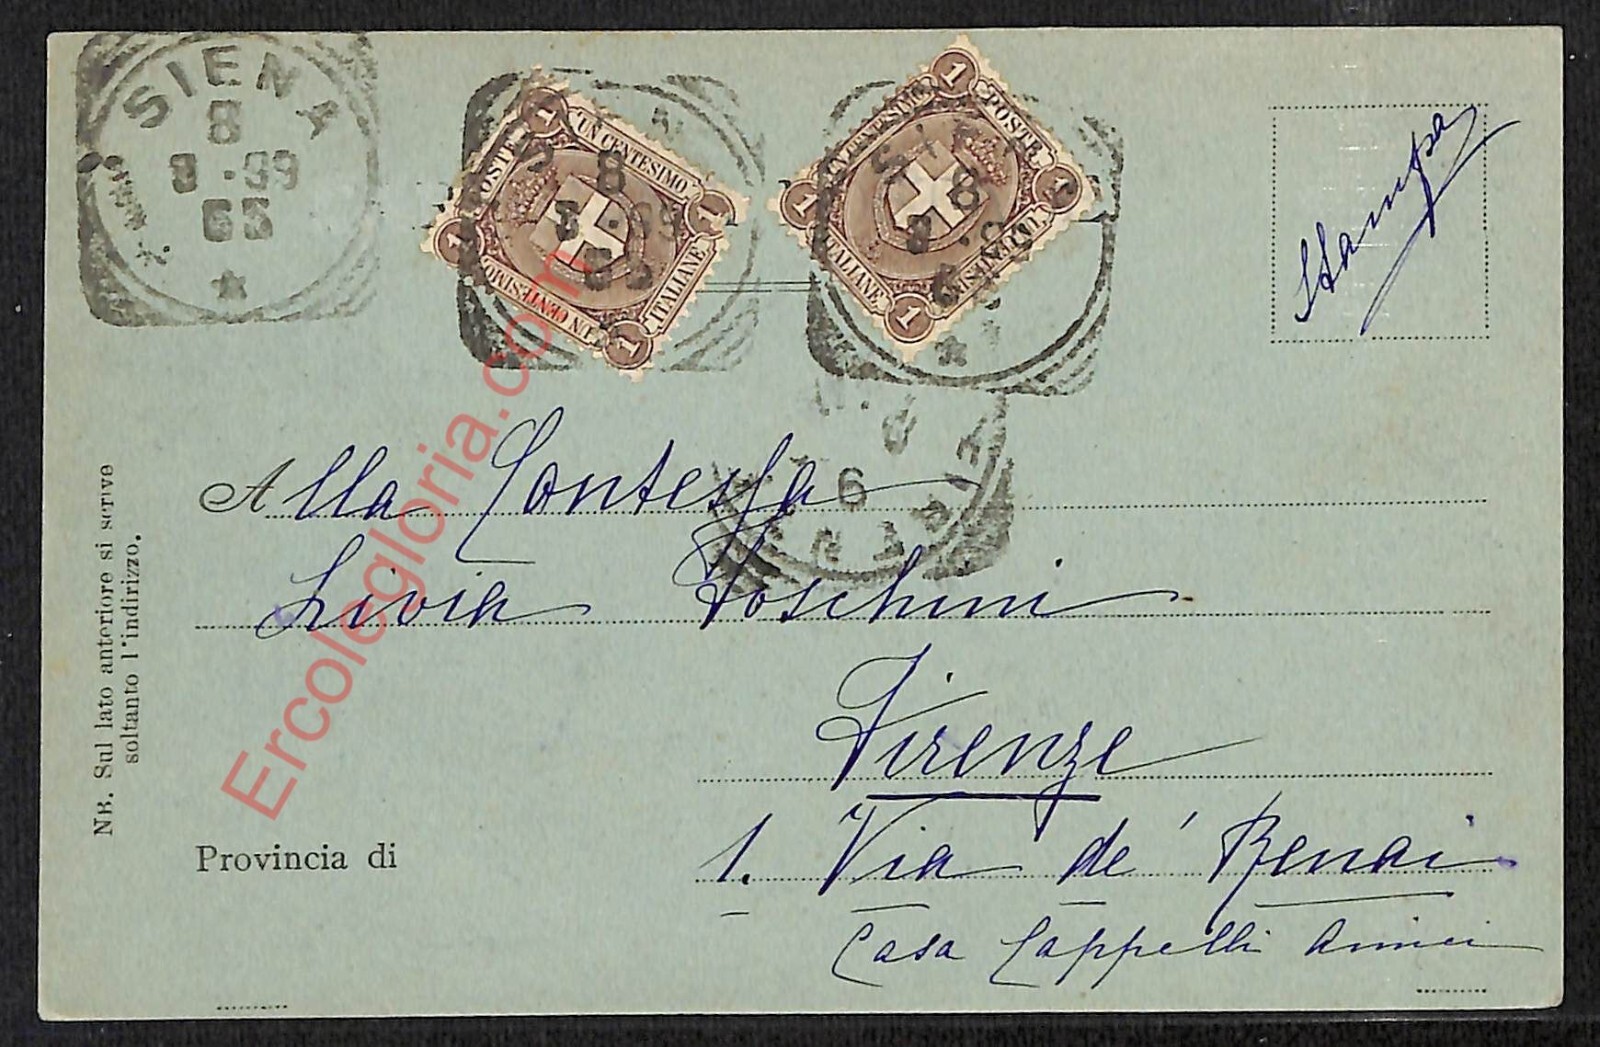 SIENA
8
8 · 99
6S
1 POSTE 1 UN CENTESIMO 1 ITALIANE 1 UN CENTESIMO
8
1 UN CENTESIMO 1 POSTE 1 UN CENTESIMO 1 ITALIANE
8
Stampa
Alla Contessa
9
Livia Foschini
Firenze
1. Via de' Renai
Casa Cappelli Amici
Provincia di
NB. Sul lato anteriore si scrive
soltanto l'indirizzo.
Ercolegloria.com